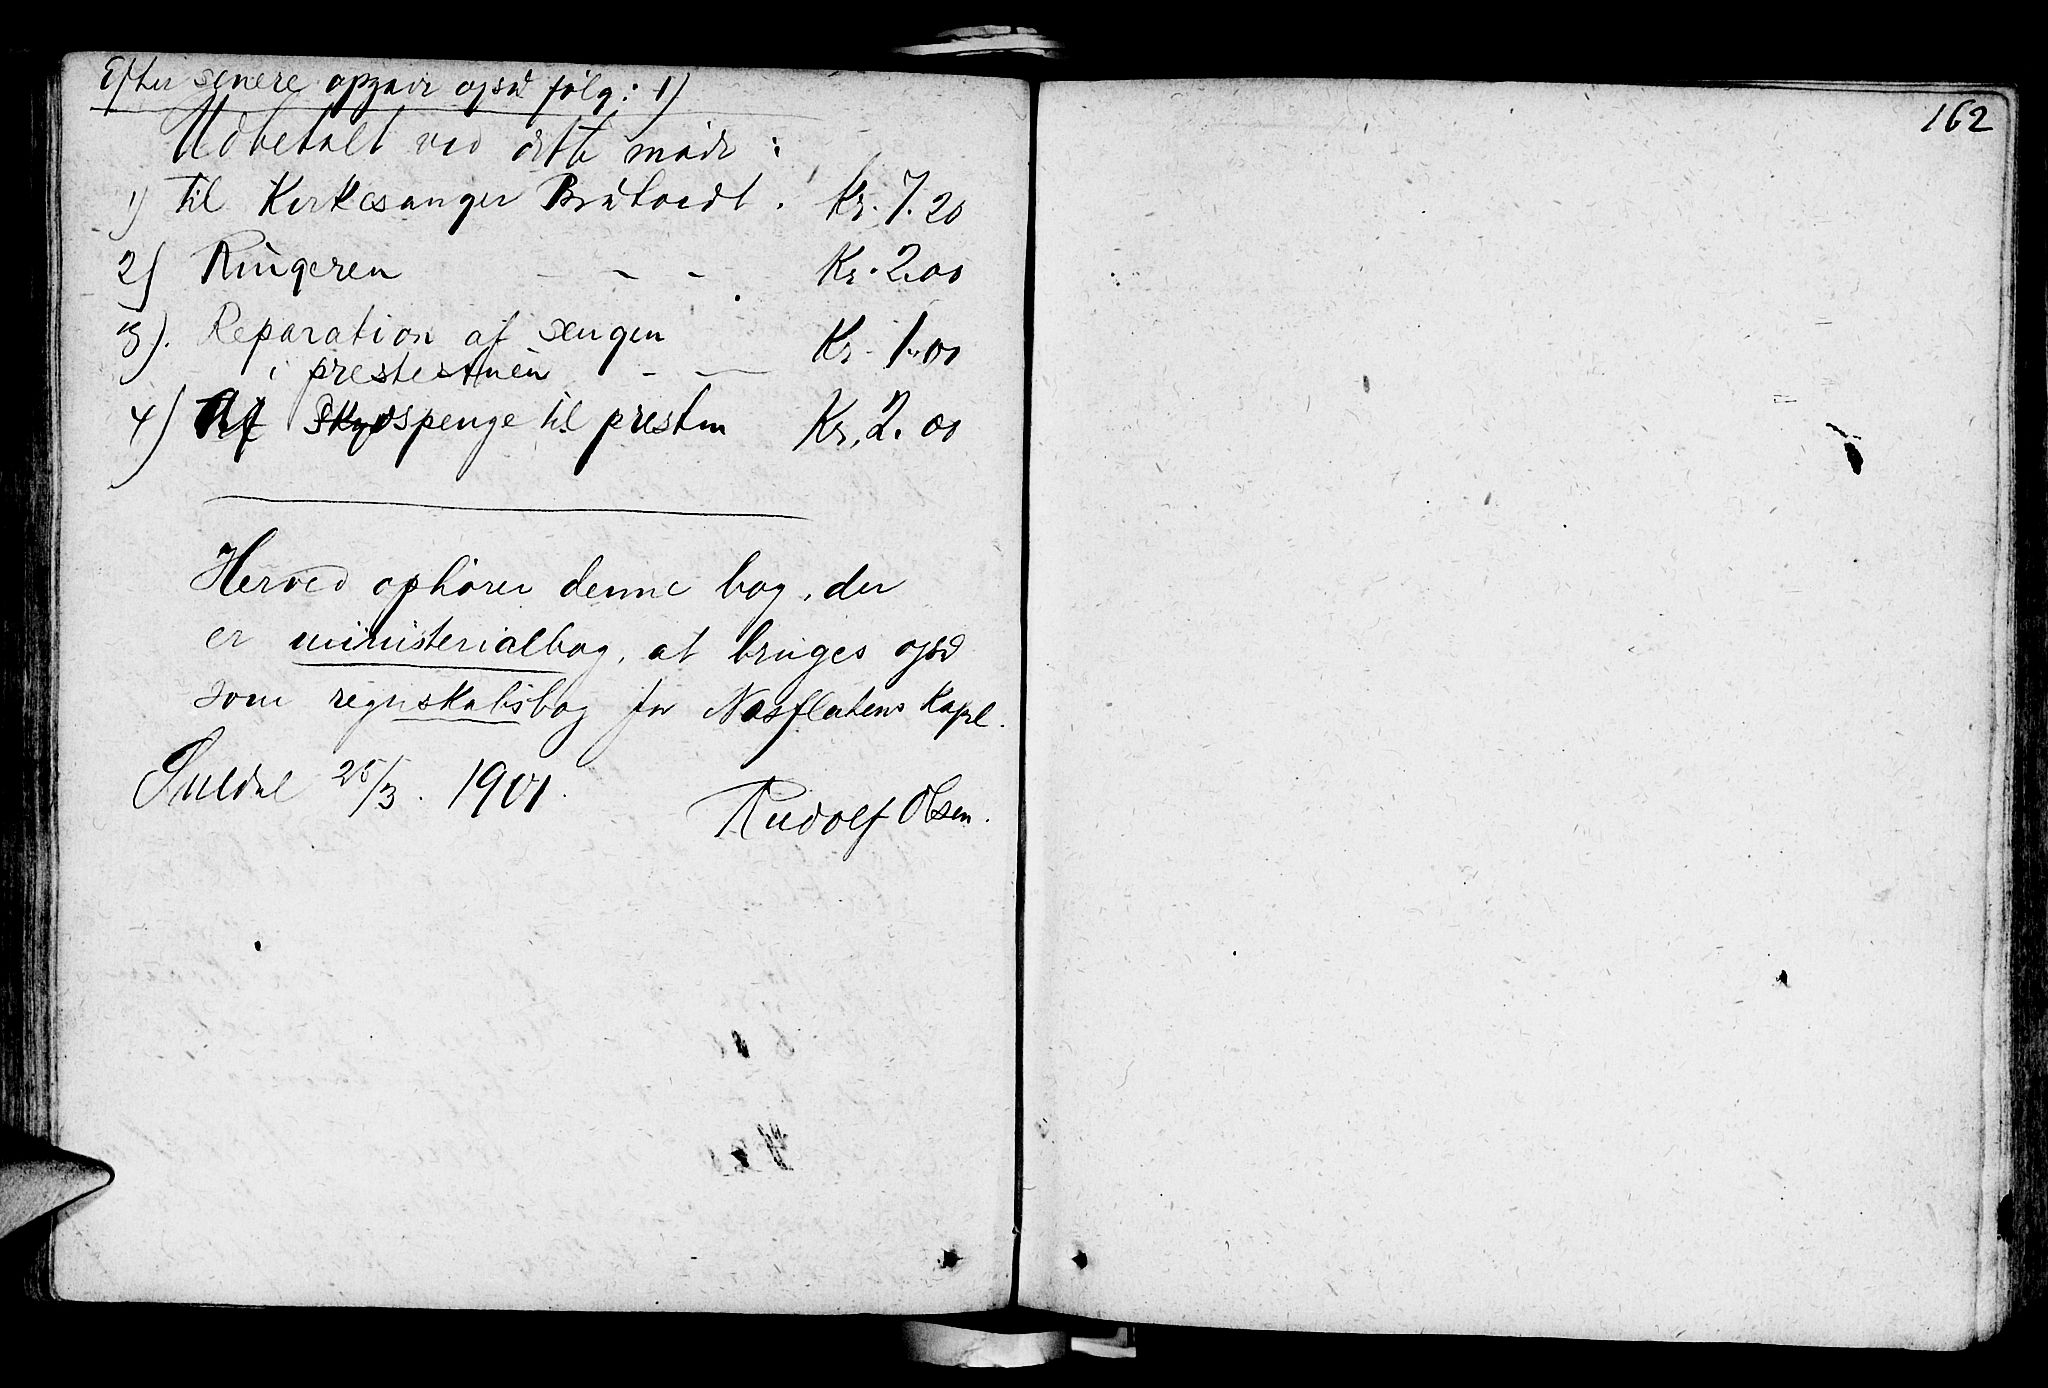 Efter senere opgave også følg: 1)
Udbetalt ved dette møde:
1) til Kirkesanger Bråtvedt. Kr. 7.20
2) Ringeren - - - Kr. 2.00
3). Reparation af sengen
i prestestuen - - Kr. 1.00
4) Skydspenge til presten Kr. 2.00
Herved ophører denne bog, der
er ministerialbog, at bruges også
som regnskabsbog for Næsflatens Kapel.
Suldal 25/3. 1901.
Rudolf Olsen.
162